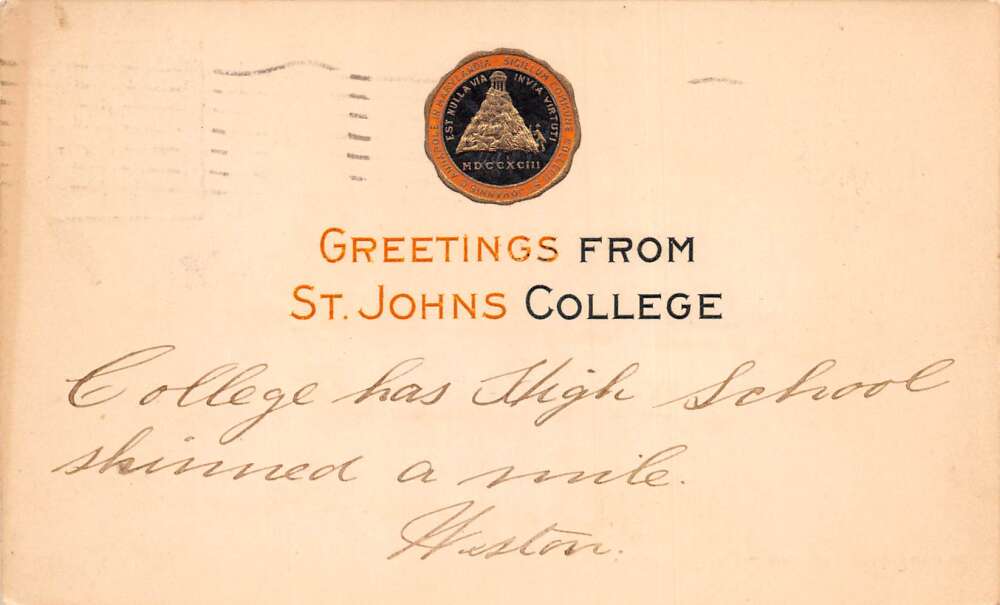 SIGILLUM COMMUNE
IN MARYLANDIA
EST NULLA VIA INVIA VIRTUTI
MDCCXCIII
GREETINGS FROM
ST. JOHNS COLLEGE
College has High School
skinned a mile.
Weston.